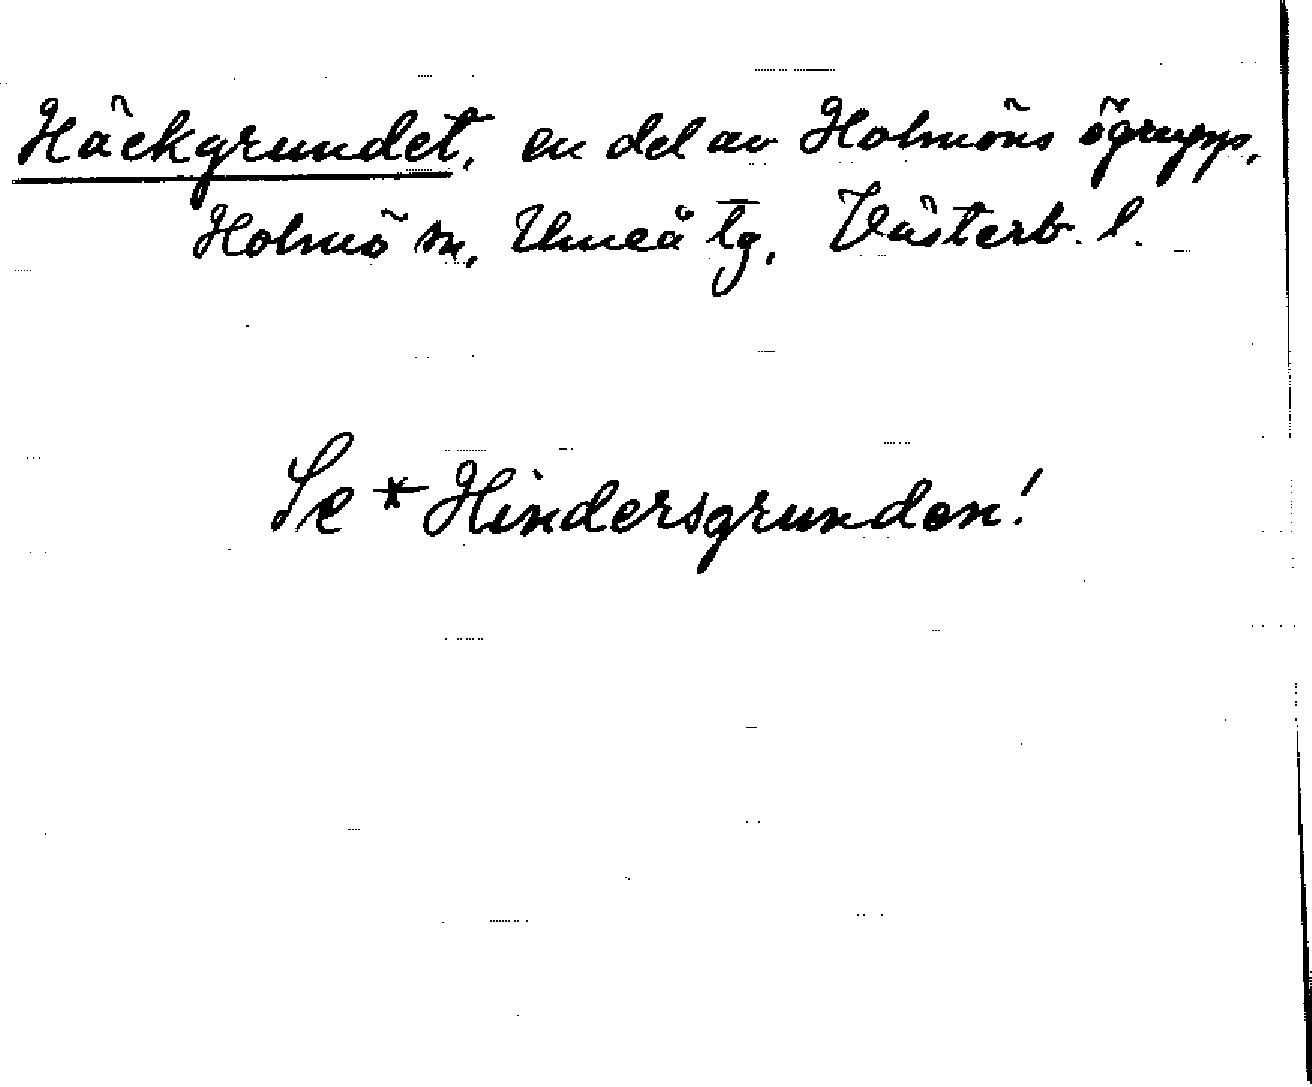 Häckgrundet, en del av Holmöns ögrupp,
Holmö sn, Umeå tg, Västerb. l.
Se *Hindersgrunden!